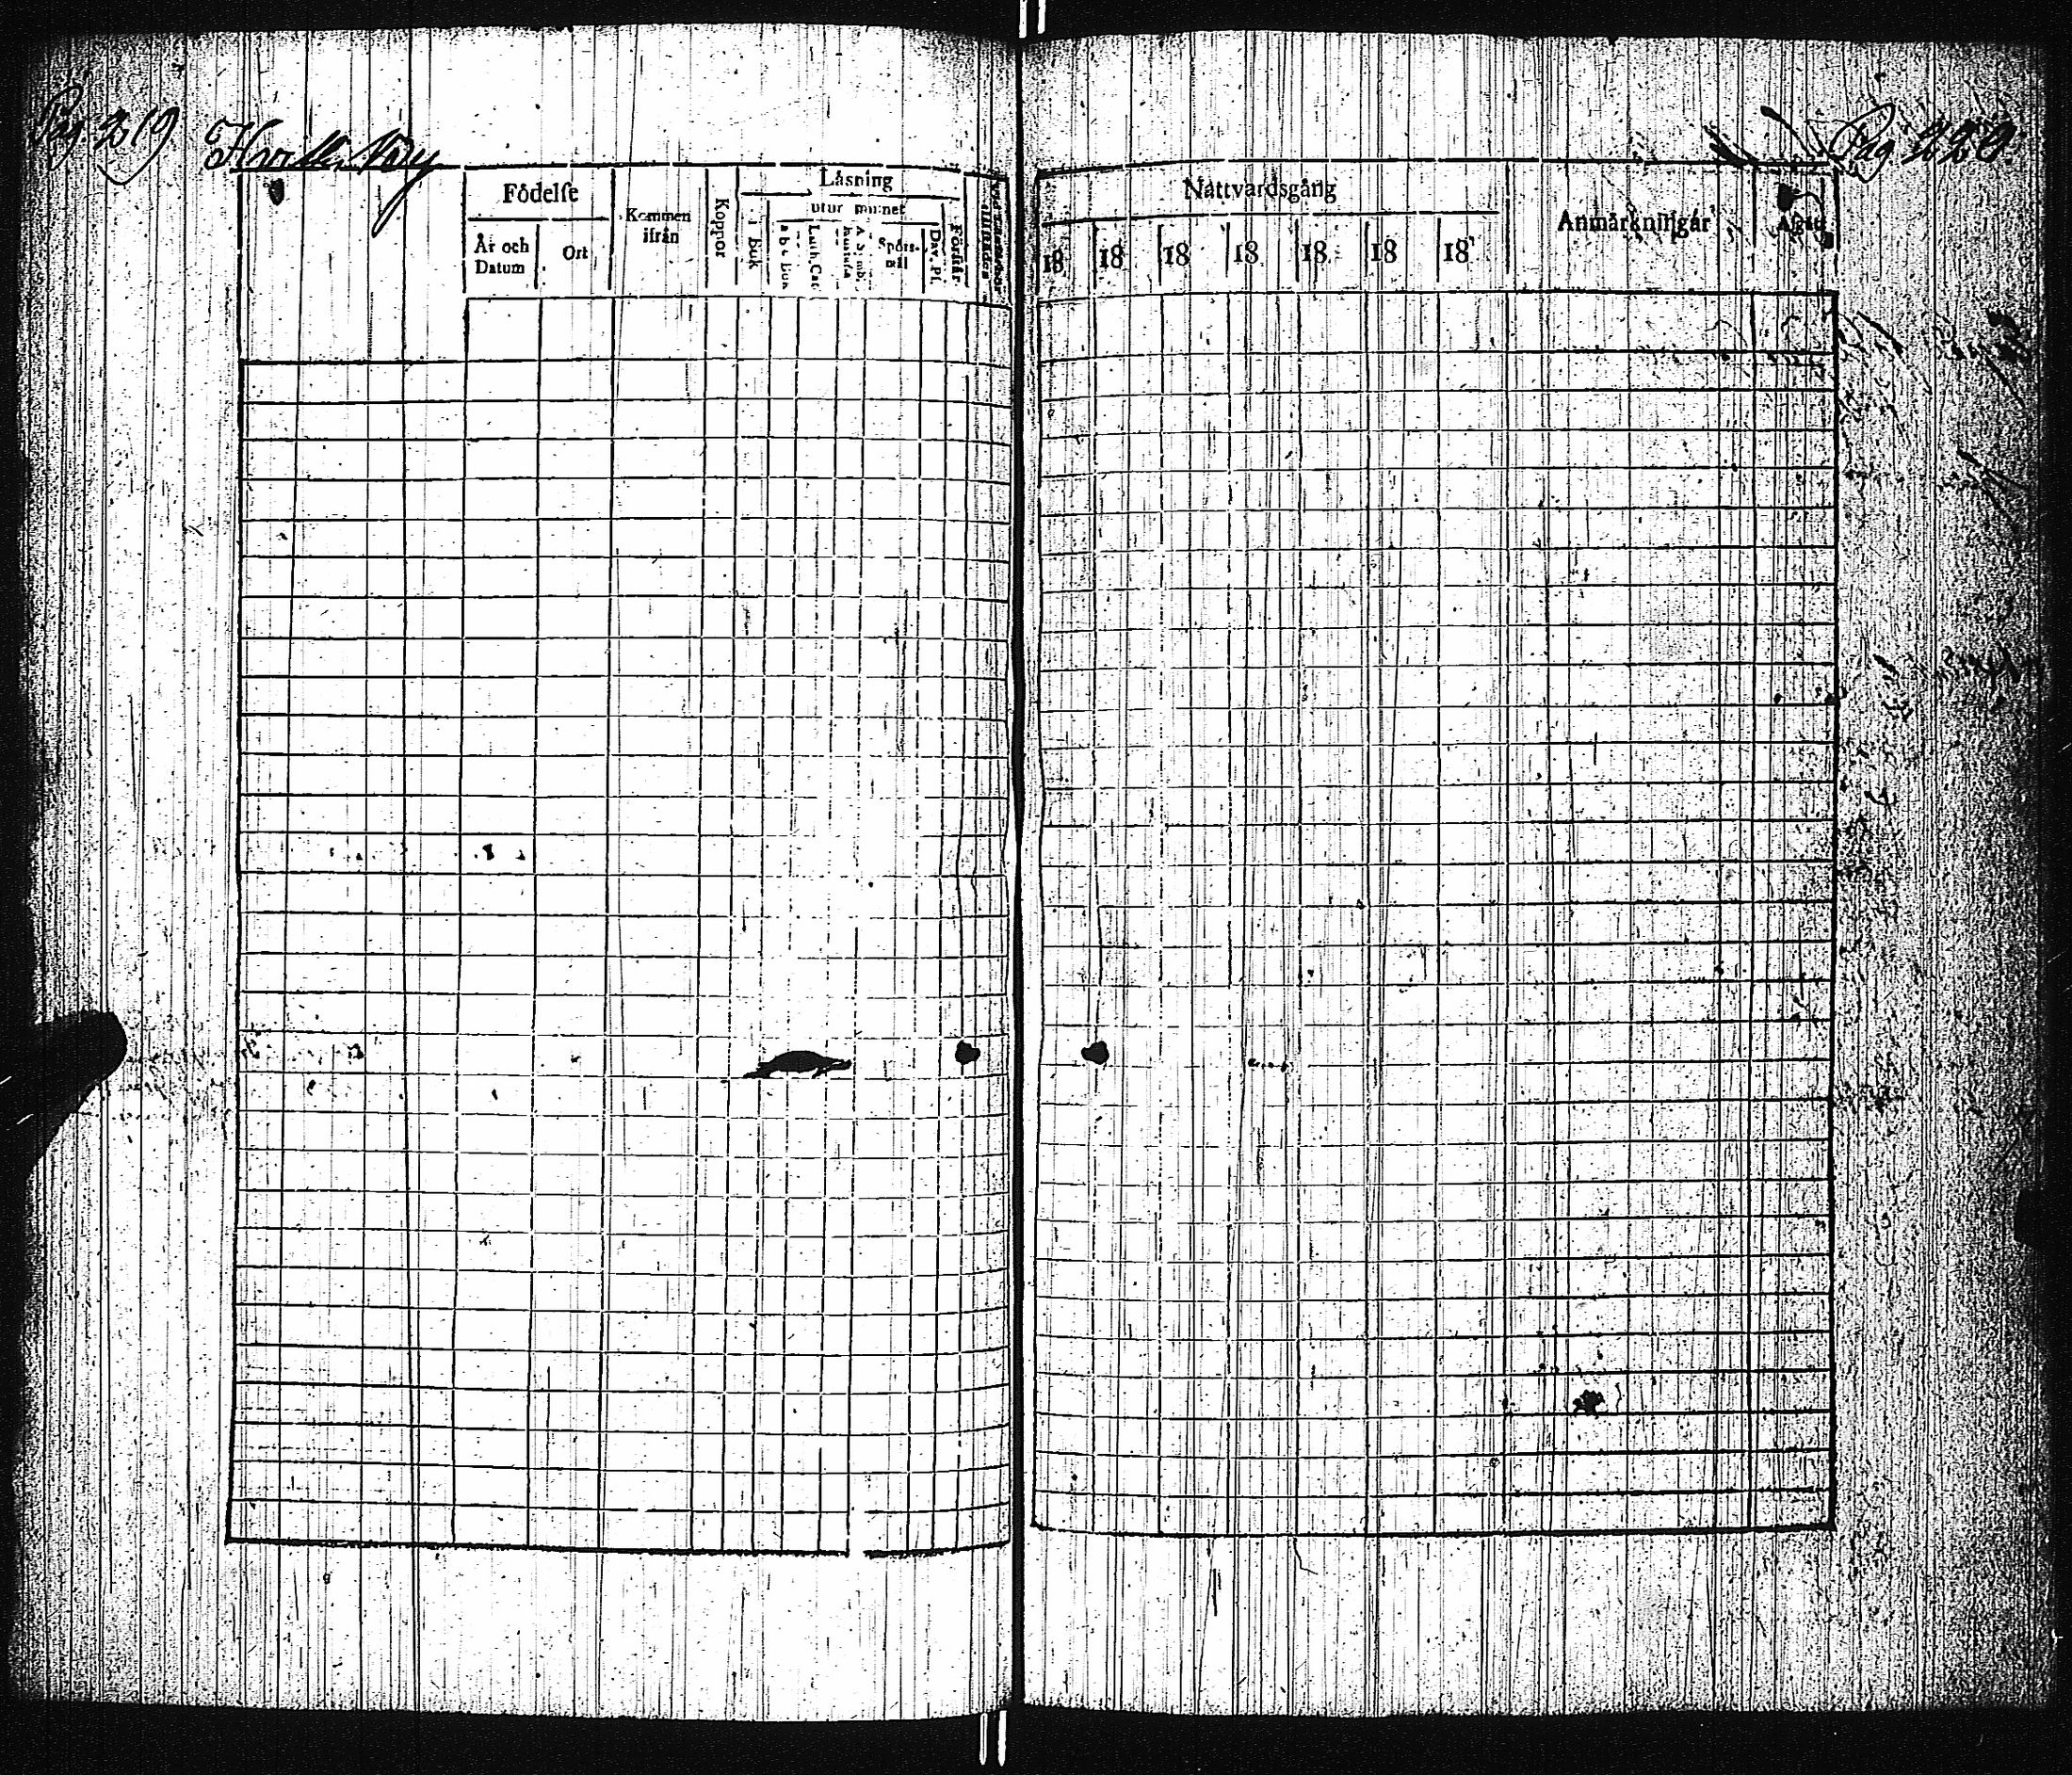 Pag 219
Pag 220.
Födelse
År och Datum
Ort
Kommen ifrån
Koppor
Läsning
i bok
utur minnet
a b c Bok
Luth. Cat.
Spörs-mål
Dav. Ps.
Förstår
Nattvardsgång
18 18 18 18 18 18 18
Anmärkningar
Afgått